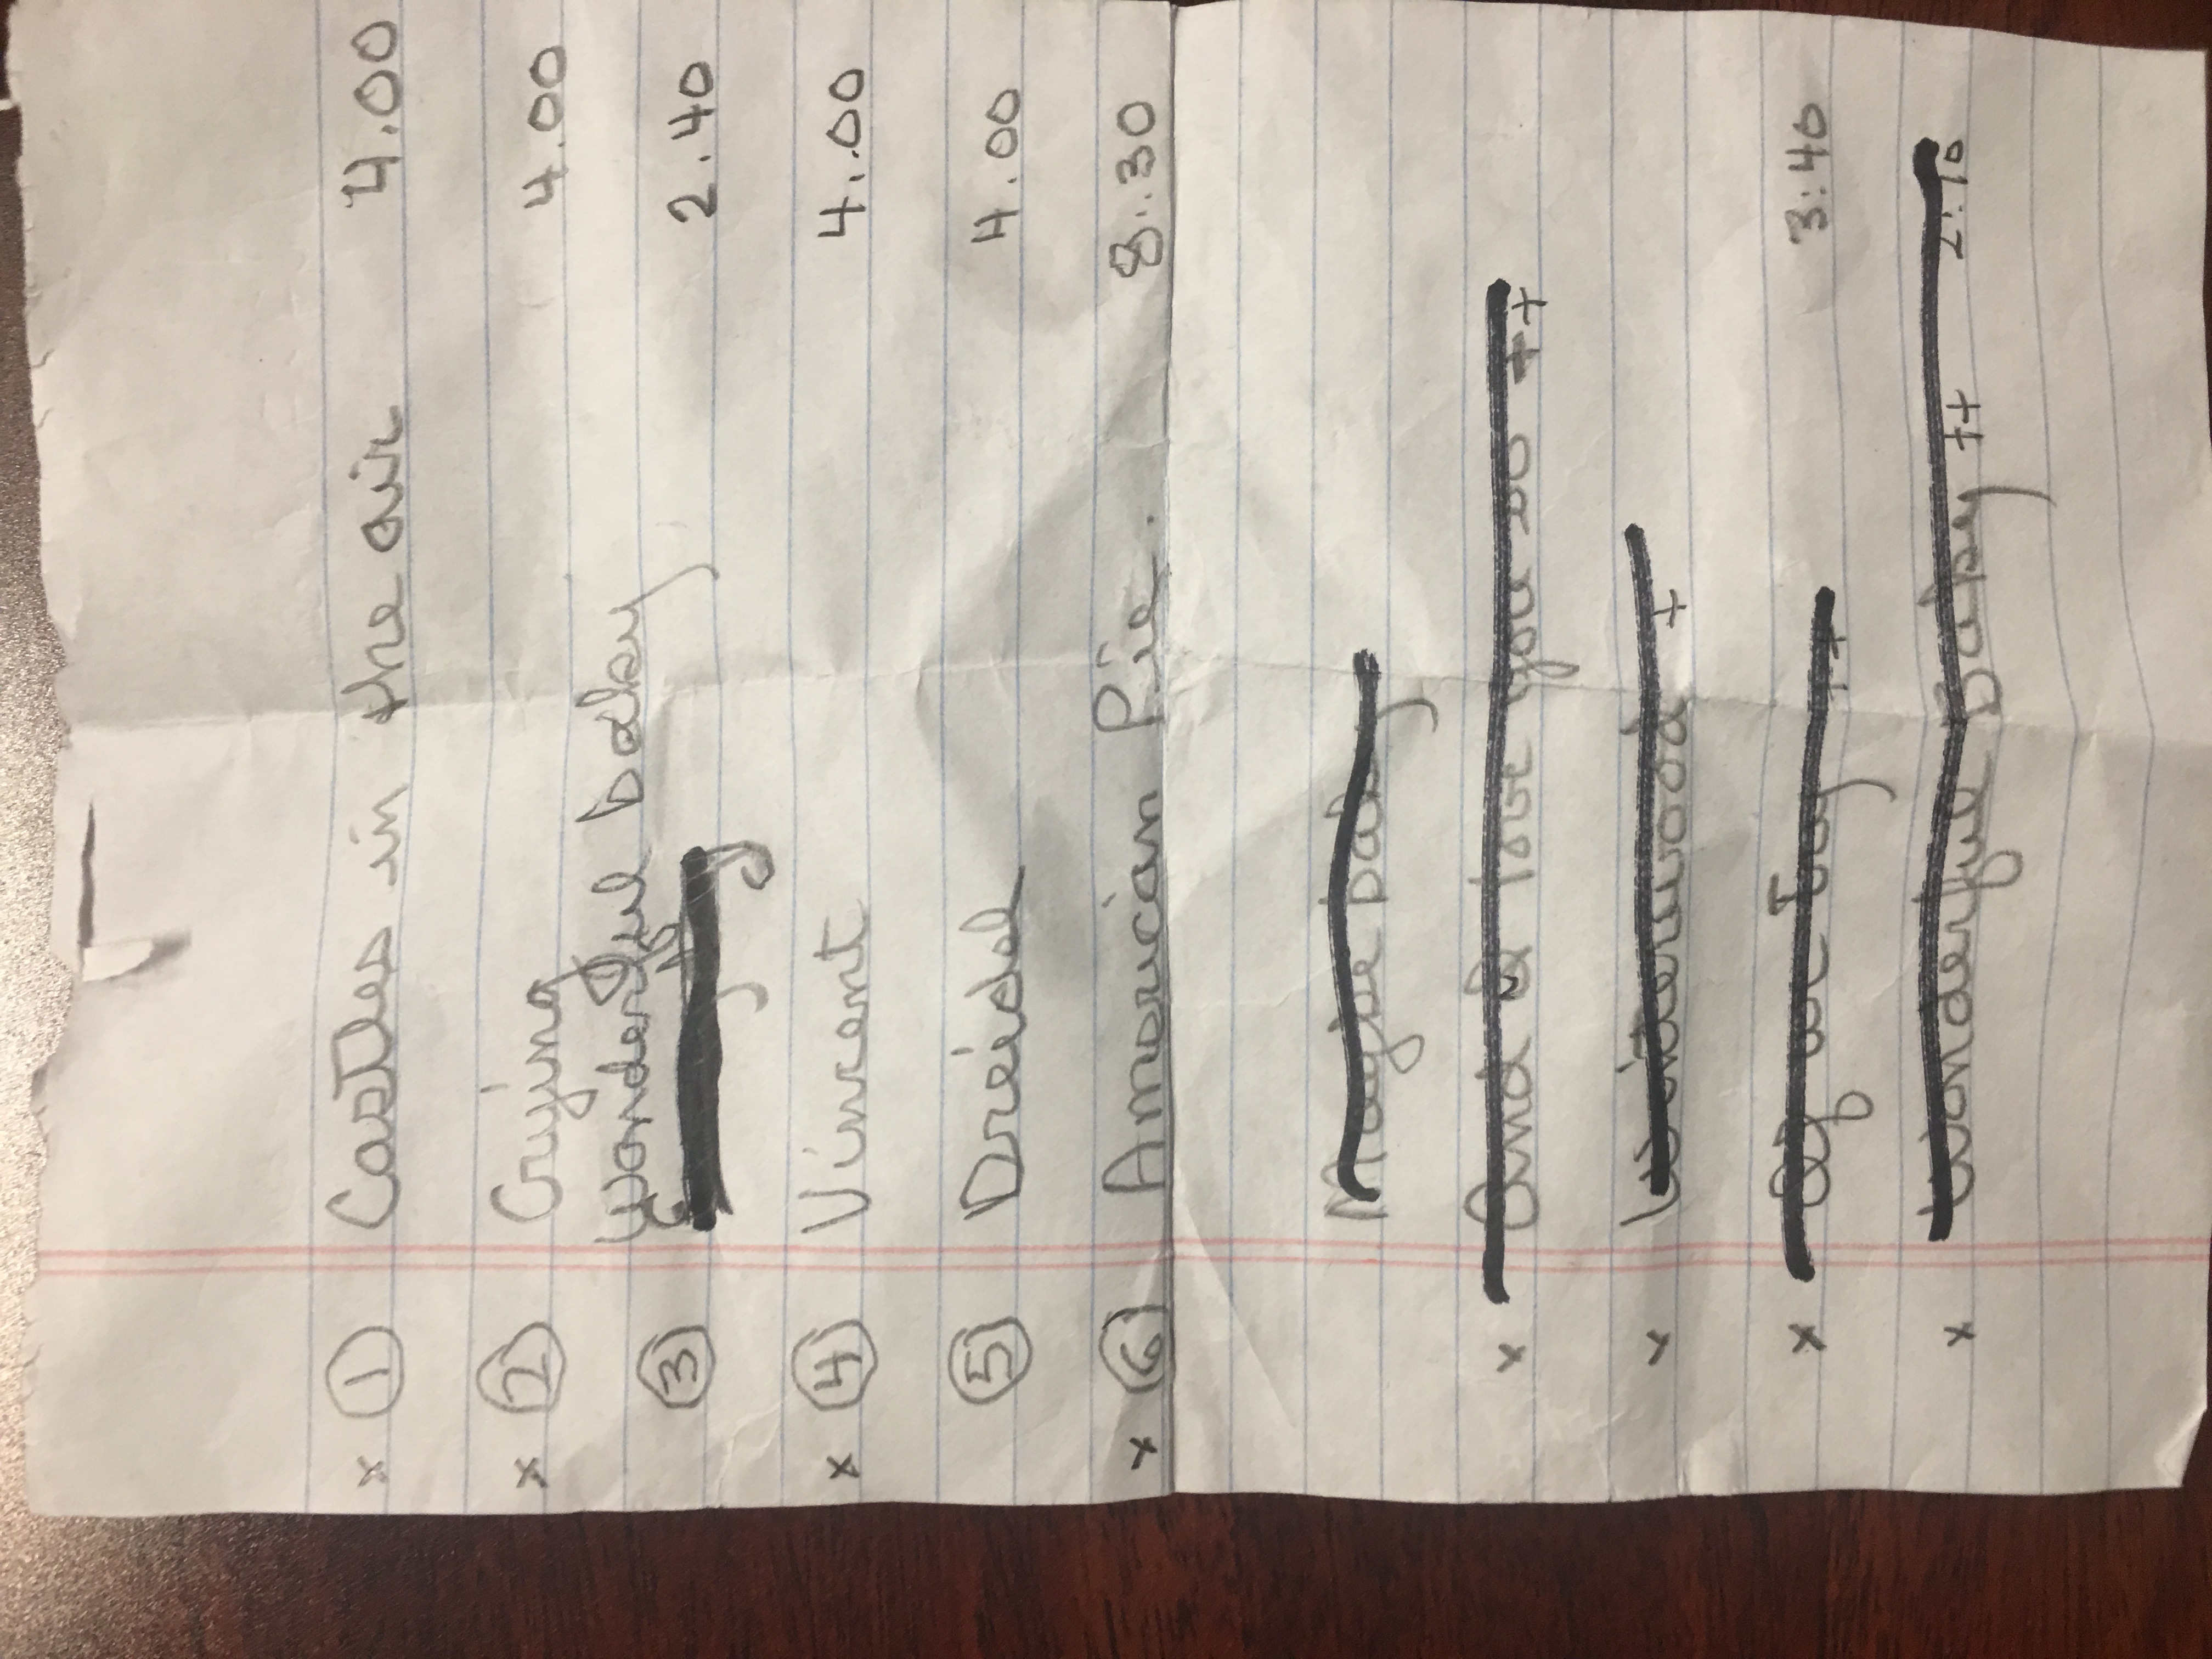 x ① Castles in the air 4.00
x ② Crying 4.00
Wonderful baby
③ 2.40
x ④ Vincent 4..00
⑤ Dreidel 4.00
x ⑥ American Pie. 8..30
Maybe baby
x And I love you so ++
x Winterwood +
x If we Try ++ 3:40
x Wonderful Baby ++